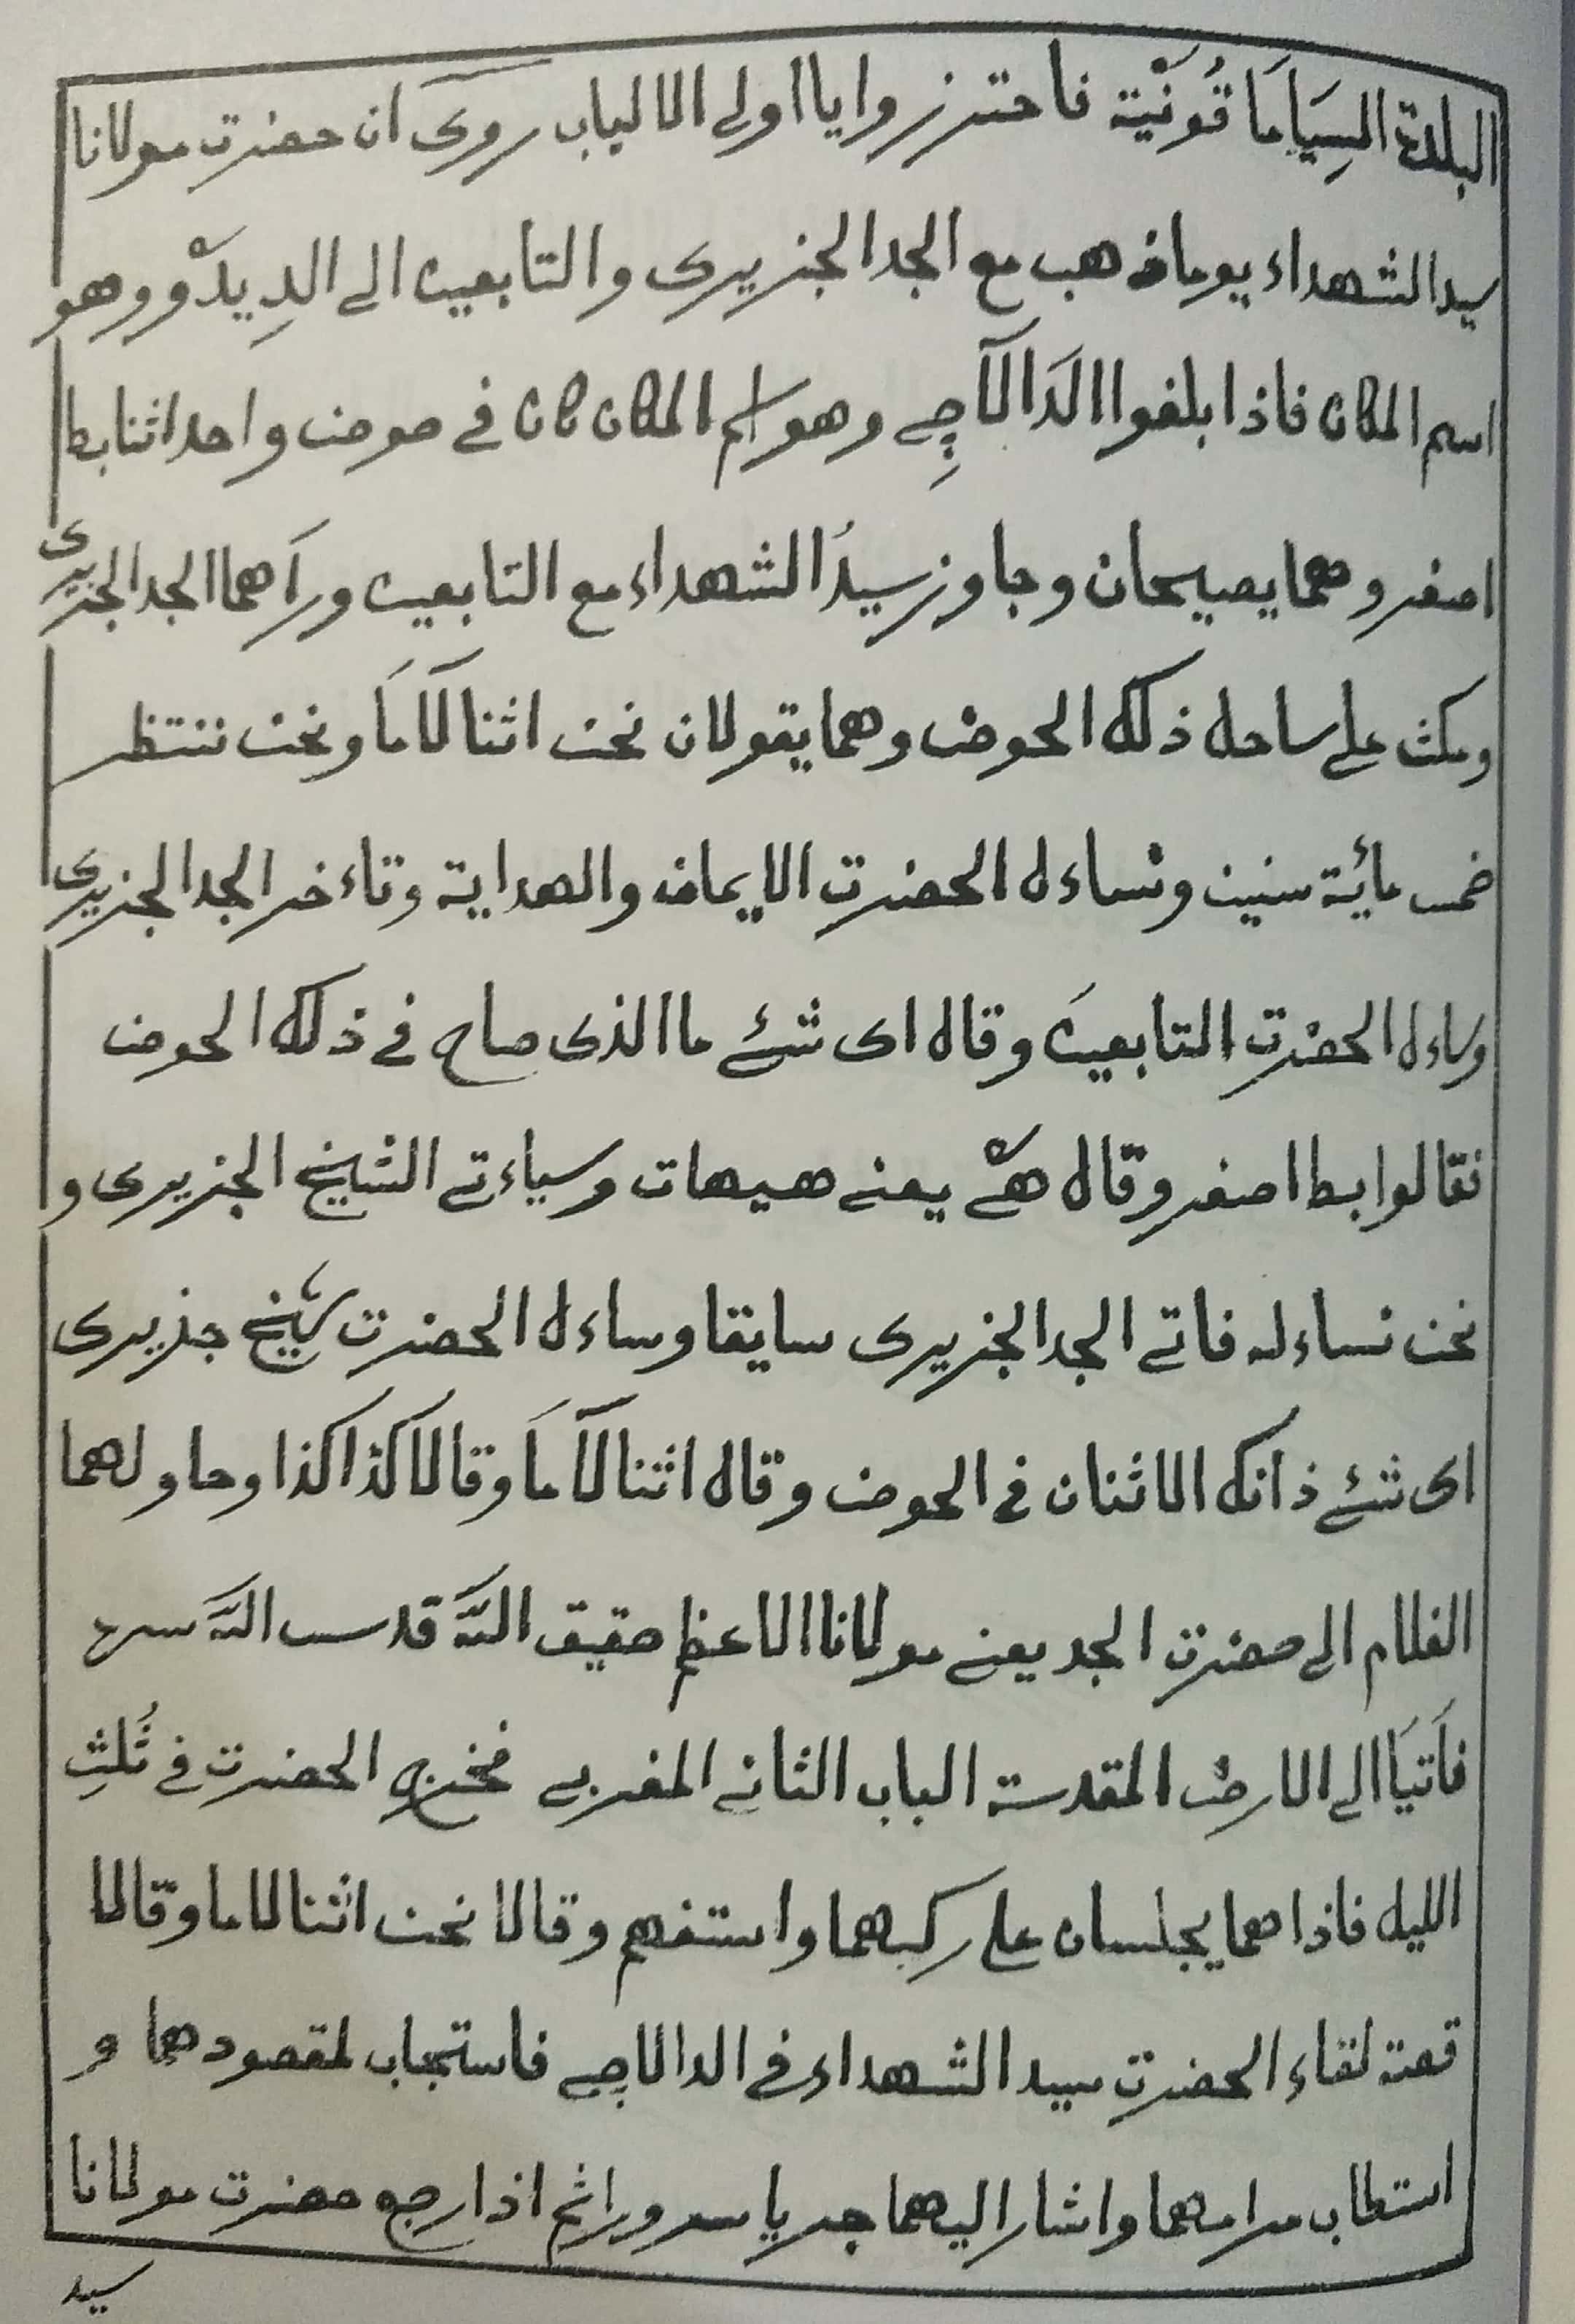 البلدة السِيَامَا قُونْيَة فاحتزروا يا اولى الالباب روى ان حضرت مولانا
سيد الشهداء يوما ذهب مع الجد الجزيرى والتابعين الى الدِيدْو وهو
اسم المكان فاذا بلغوا الدَالآچِى وهو اسم المكان كان فى حوض واحد اثنا بط
اصفر وهما يصيحان وجاوز سيدُ الشهداء مع التابعين ورآهما الجد الجزيرى
ومكث على ساحل ذلك الحوض وهما يقولان نحن اثنا لآمَا ونحن ننتظر
خمس مائة سنين ونساءل الحضرت الايمان والهداية وتاءخر الجد الجزيرى
وساءل الحضرت التابعينَ وقال اى شئ ما الذى صاح فى ذلك الحوض
فقالوا بط اصفر وقال هىْ يعنى هيهات وسياءتى الشيخ الجزيرى و
نحن نساءله فاتى الجد الجزيرى سايقا وساءل الحضرت شيخ جذيرى
اى شئ ذانك الاثنان فى الحوض وقال اثنا لآمَا وقالا كذا كذا وحاولهما
الغلام الى حضرت الجد يعنى مولانا الاعظم حقيق اللّه قدس اللّه سره
فاَتيَا الى الارض المقدسة الباب الثانى المغربى فخرج الحضرت فى ثُلثِ
الليل فاذا هما يجلسان على ركبهما واستفهم وقالا نحن اثنا لاما وقالا
قصة لقاء الحضرت سيد الشهداء فى الدالاچى فاستجاب لمقصودهما و
استطاب مرامهما واشار اليهما جريا سرورا ثم اذا رجع حضرت مولانا
سيد